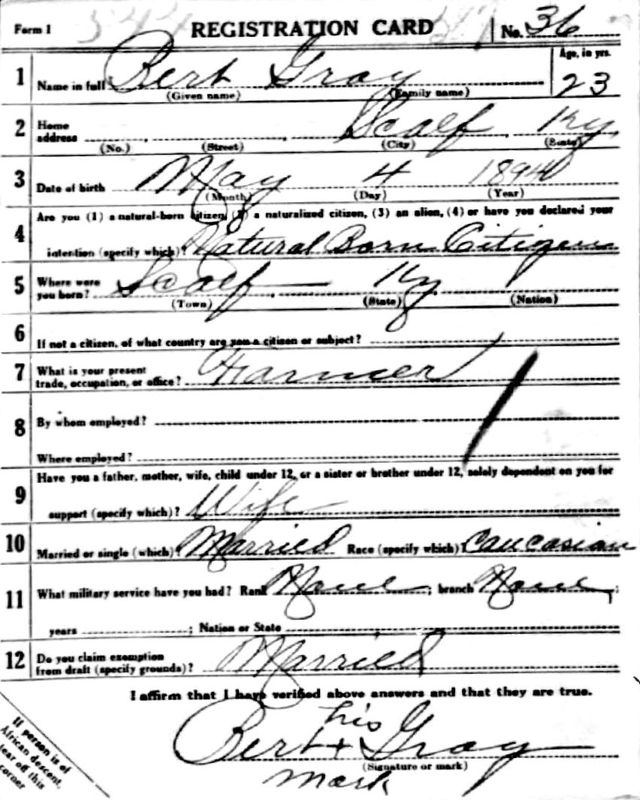 Form 1 REGISTRATION CARD No. 36
1 Name in full Bert Gray Age, in yrs. 23
(Given name) (Family name)
2 Home address Scalf, Ky
(No.) (Street) (City) (State)
3 Date of birth May 4 1894
(Month) (Day) (Year)
4 Are you (1) a natural-born citizen, (2) a naturalized citizen, (3) an alien, (4) or have you declared your
intention (specify which)? Natural Born Citizen
5 Where were you born? Scalf Ky
(Town) (State) (Nation)
6 If not a citizen, of what country are you a citizen or subject?
7 What is your present trade, occupation, or office? Farmer
8 By whom employed?
Where employed?
9 Have you a father, mother, wife, child under 12, or a sister or brother under 12, solely dependent on you for
support (specify which)? Wife
10 Married or single (which)? Married Race (specify which)? Caucasian
11 What military service have you had? Rank None; branch None;
years ; Nation or State
12 Do you claim exemption from draft (specify grounds)? Married
I affirm that I have verified above answers and that they are true.
his
Bert + Gray
(Signature or mark)
mark
If person is of
African descent,
tear off this
corner